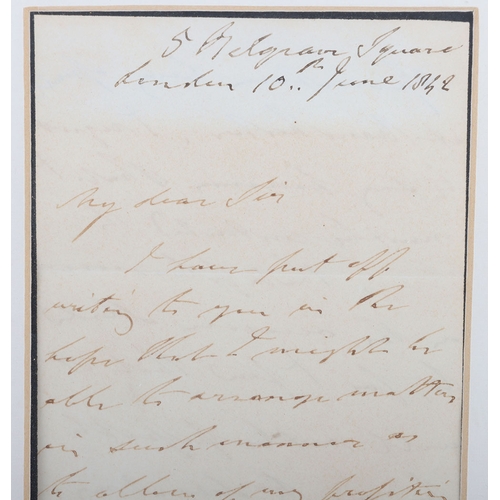 5 Belgrave Square
London 10th June 1842
My dear Sir
I have put off
writing to you in the
hope that I might be
able to arrange matters
in such manner as
to allow of my